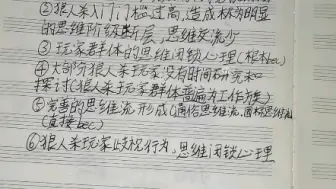 ②狼人杀入门门槛过高,造成较为明显
的思维阶级断层,思维交流少
③玩家群体的思维闭锁心理(根本bec)
④大部分狼人杀玩家没有时间研究和
探讨(狼人杀玩家群体普遍为工作族)
⑤完善的思维流形成(通俗思维流,固标思维流)
(直接bec)
⑥狼人杀玩家歧视行为,思维闭锁心理